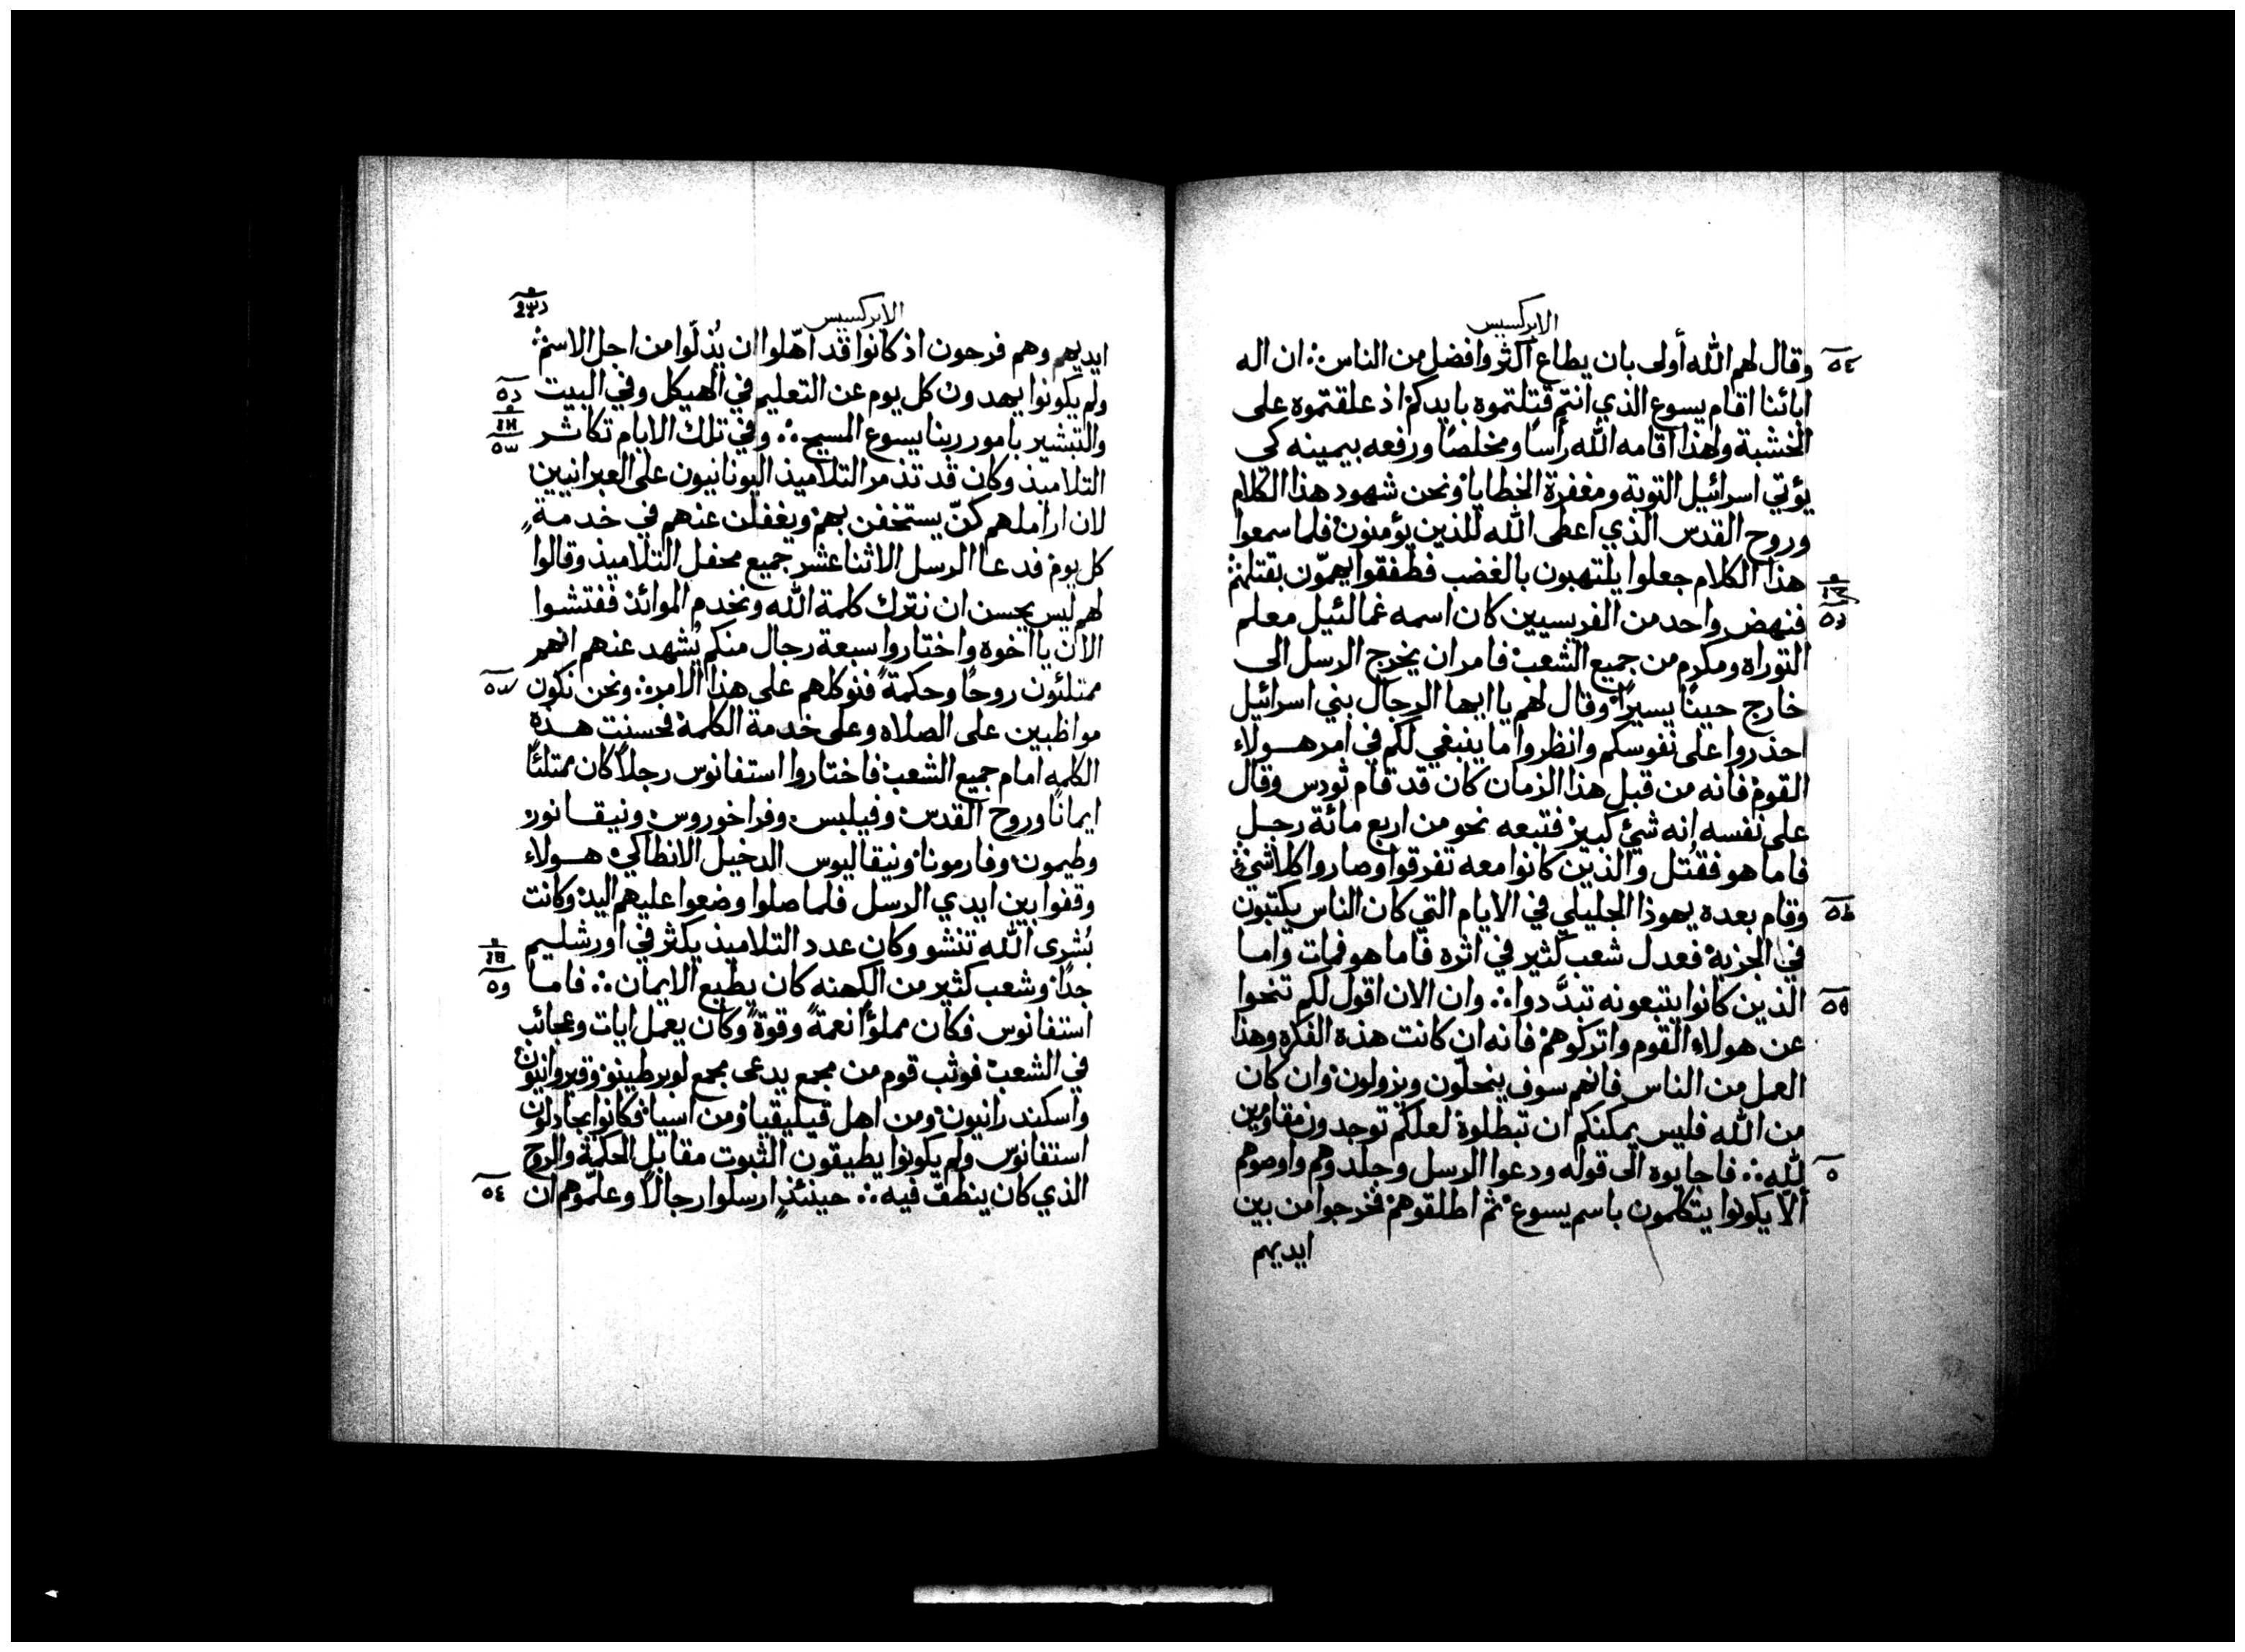 الابركسيس
وقال لهم الله أولى بان يطاع اكثر وافضل من الناس ان اله
ابائنا اقام يسوع الذي انتم قتلتموه بايديكم اذ علقتموه على
الخشبة ولهذا اقامه الله رأسا ومخلصا ورفعه بيمينه كى
يؤتي اسرائيل التوبة ومغفرة الخطايا ونحن شهود هذا الكلام
وروح القدس الذي اعطى الله للذين يؤمنون فلما سمعوا
هذا الكلام جعلوا يلتهبون بالغضب فطفقوا يهمّون بقتلهم
فنهض واحد من الفريسيين كان اسمه غمالئيل معلم
التوراه ومكرم من جميع الشعب فامر ان يخرج الرسل الى
خارج حينًا يسيرًا وقال لهم يا ايها الرجال بني اسرائيل
احذروا على نفوسكم وانظروا ما ينبغي لكم في امر هولاء
القوم فانه من قبل هذا الزمان كان قد قام ثودس وقال
على نفسه انه شئ كبير فتبعه نحو من اربع مائة رجل
فاما هو فقُتل والذين كانوا معه تفرقوا وصاروا كلاشئ
وقام بعده يهوذا الجليلي في الايام التي كان الناس يكتبون
في الجزية فعدل شعب كثير في اثره فاما هو فمات واما
الذين كانوا يتبعونه تبدّدوا وان الان اقول لكم تنحوا
عن هولاء القوم واتركوهم فانه ان كانت هذه الفكره وهذا
العمل من الناس فانهم سوف ينحلّون ويزولون وان كان
من الله فليس يمكنكم ان تبطلوة لعلكم توجدون مقاومين
لله فاجابوه الى قوله ودعوا الرسل وجلدوهم واوصوهم
ألا يكونوا يتكلمون باسم يسوع ثم اطلقوهم فخرجوا من بين
ايديهم
الابركسيس
ايديهم وهم فرحون اذ كانوا قد اهّلوا ان يُذلّوا من اجل الاسم
ولم يكونوا يهدون كل يوم عن التعليم في الهيكل وفي البيت
والتبشير بامور ربنا يسوع المسيح وفي تلك الايام تكاثر
التلاميذ وكان قد تذمر التلاميذ اليونانيون على العبرانيين
لان اراملهم كنّ يستخفن بهم ويغفلن عنهم في خدمة
كل يوم فدعا الرسل الاثنا عشر جميع محفل التلاميذ وقالوا
لهم ليس يحسن ان نترك كلمة الله ونخدم الموائد ففتشوا
الان يا اخوه واختاروا سبعة رجال منكم يُشهد عنهم انهم
ممتلئون روحًا وحكمةً فنوكلهم على هذا الامر ونحن نكون
مواظبين على الصلاه وعلى خدمة الكلمة فحسنت هذه
الكلمه امام جميع الشعب فاختاروا استفانوس رجلاً كان ممتلئًا
ايمانًا وروح القدس وفيلبس وفراخوروس ونيقانور
وطيمون وفارمونا ونيقاليوس الدخيل الانطاكي هولاء
وقفوا بين ايدي الرسل فلما صلوا وضعوا عليهم اليد وكانت
بُشرى الله تنشو وكان عدد التلاميذ يكثر في اورشليم
جدًا وشعب كثير من الكهنه كان يطيع الايمان فاما
استفانوس فكان مملؤًا نعمةً وقوةً وكان يعمل ايات وعجائب
في الشعب فوثب قوم من مجمع يدعى مجمع لوبرطينو وقيروانيون
واسكندرانيون ومن اهل قيليقيا ومن اسيا فكانوا يجادلون
استفانوس ولم يكونوا يطيقون الثبوت مقابل الحكمة والروح
الذي كان ينطق فيه حينئذٍ ارسلوا رجالاً وعلّموهم ان